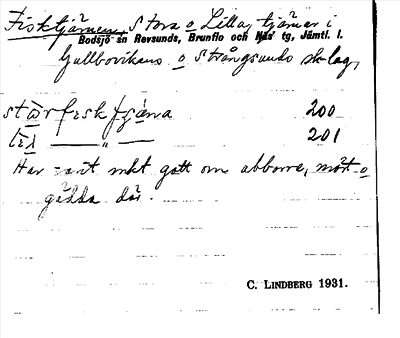 Fisktjärnen, Stora o Lilla, tjärner i
Bodsjö sn Revsunds, Brunflo och Näs' tg, Jämtl. l.
Gallbovikens o Strångsunds sk-lag,
200
li̠l — „ — 201
Har varit mkt gott om abborre, mört o
gädda där.
C. LINDBERG 1931.